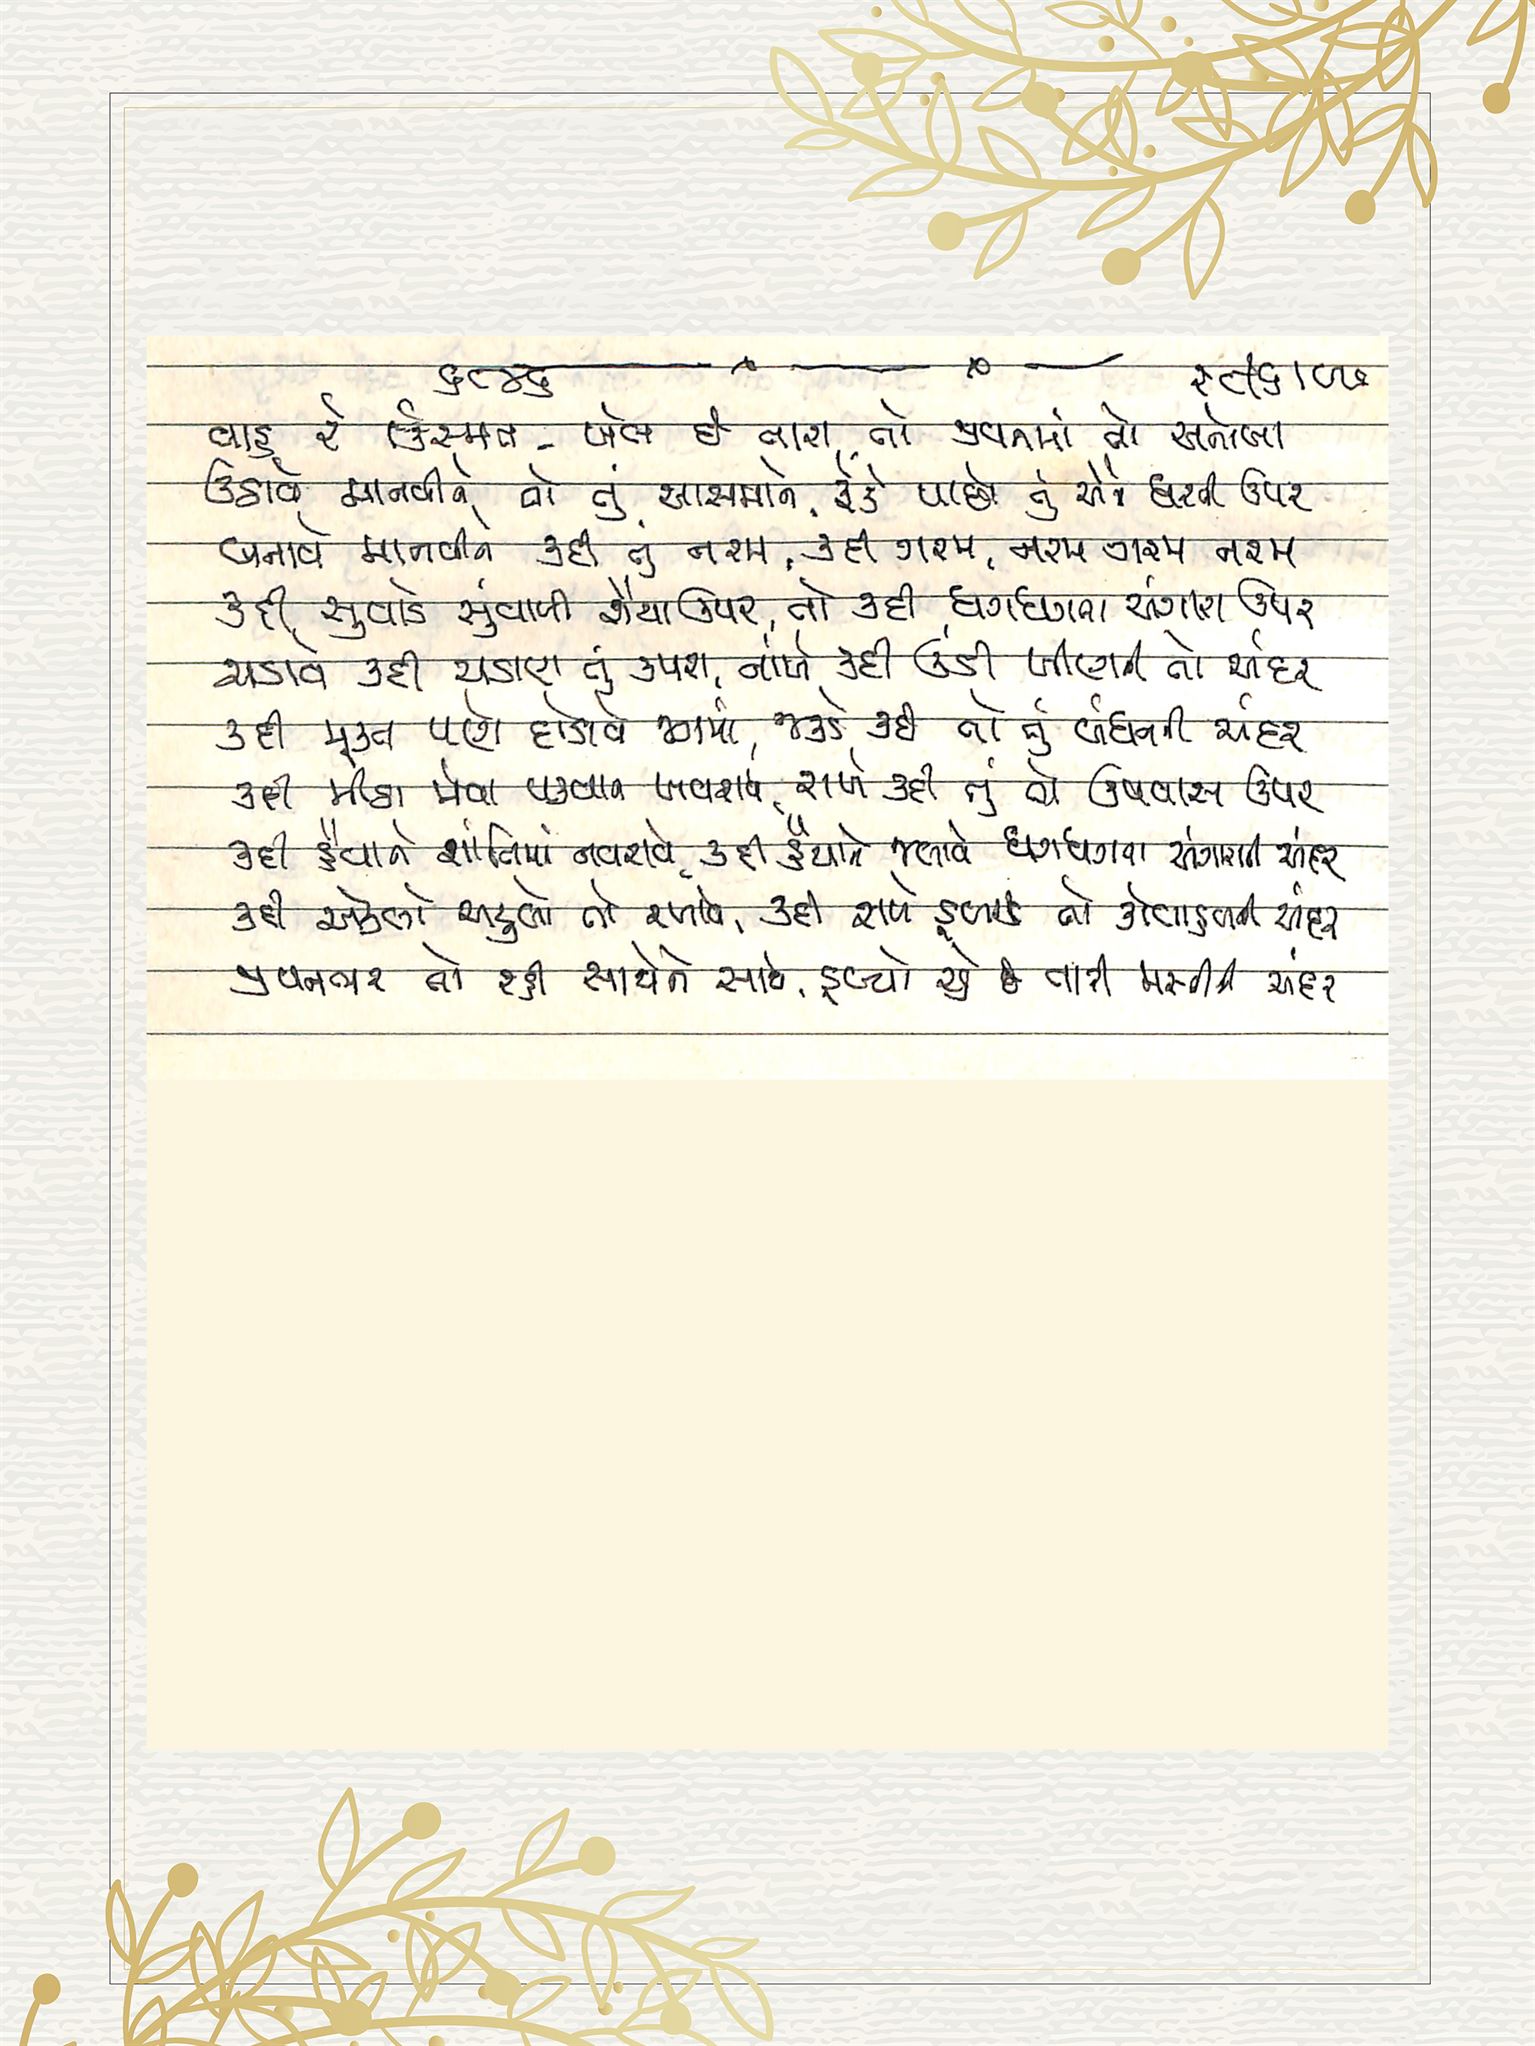 વાહ રે કિસ્મત - ખેલ છે તારા, તો જીવનમાં તો અનોખા
ઉડાવે માનવીને તો તું આસમાને, ફેંકે પાછો તું એને ધરતી ઉપર
બનાવે માનવીને કદી તું નરમ, કદી ગરમ, નરમ ગરમ નરમ
કદી સુવાડે સુંવાળી શૈયા ઉપર, તો કદી ધગધગતા અંગારા ઉપર
ચડાવે કદી ચડાણ તું કપરા, નાંખે કદી ઉંડી ખીણની તો અંદર
કદી મુક્ત પણે દોડાવે જગમાં, જકડે કદી તો તું બંધનની અંદર
કદી મીઠા મેવા પકવાન ખવરાવે, રાખે કદી તું તો ઉપવાસ ઉપર
કદી હૈયાને શાંતિમાં નવરાવે, કદી હૈયાને જલાવે ધગધગતા અંગારાની અંદર
કદી એકલો અટુલો તો રખાવે, કદી રાખે ડૂબાડી તો કોલાહલની અંદર
જીવનભર તો રહી સાથેને સાથે, ડૂબ્યો છું કે તારી મસ્તીની અંદર